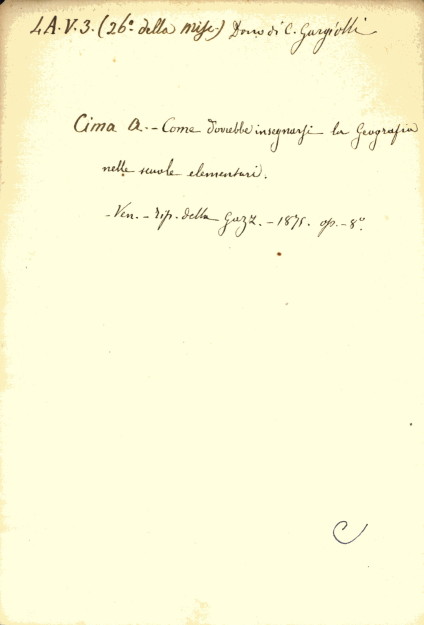 4A.V.3. (26º della misc.) Dono di C. Gargiolli
Cima A. - Come dovrebbe insegnarsi la Geografia
nelle scuole elementari.
- Ven. - Tip. della Gazz. - 1875. op. - 8º.
C